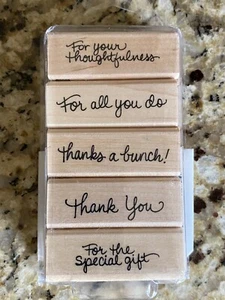 For your
thoughtfulness
For all you do
thanks a bunch!
Thank You
For the
special gift